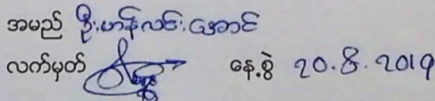 အမည် ဦးဟန်လင်းအောင်
လက်မှတ် နေ့စွဲ ၃၀.8.2019